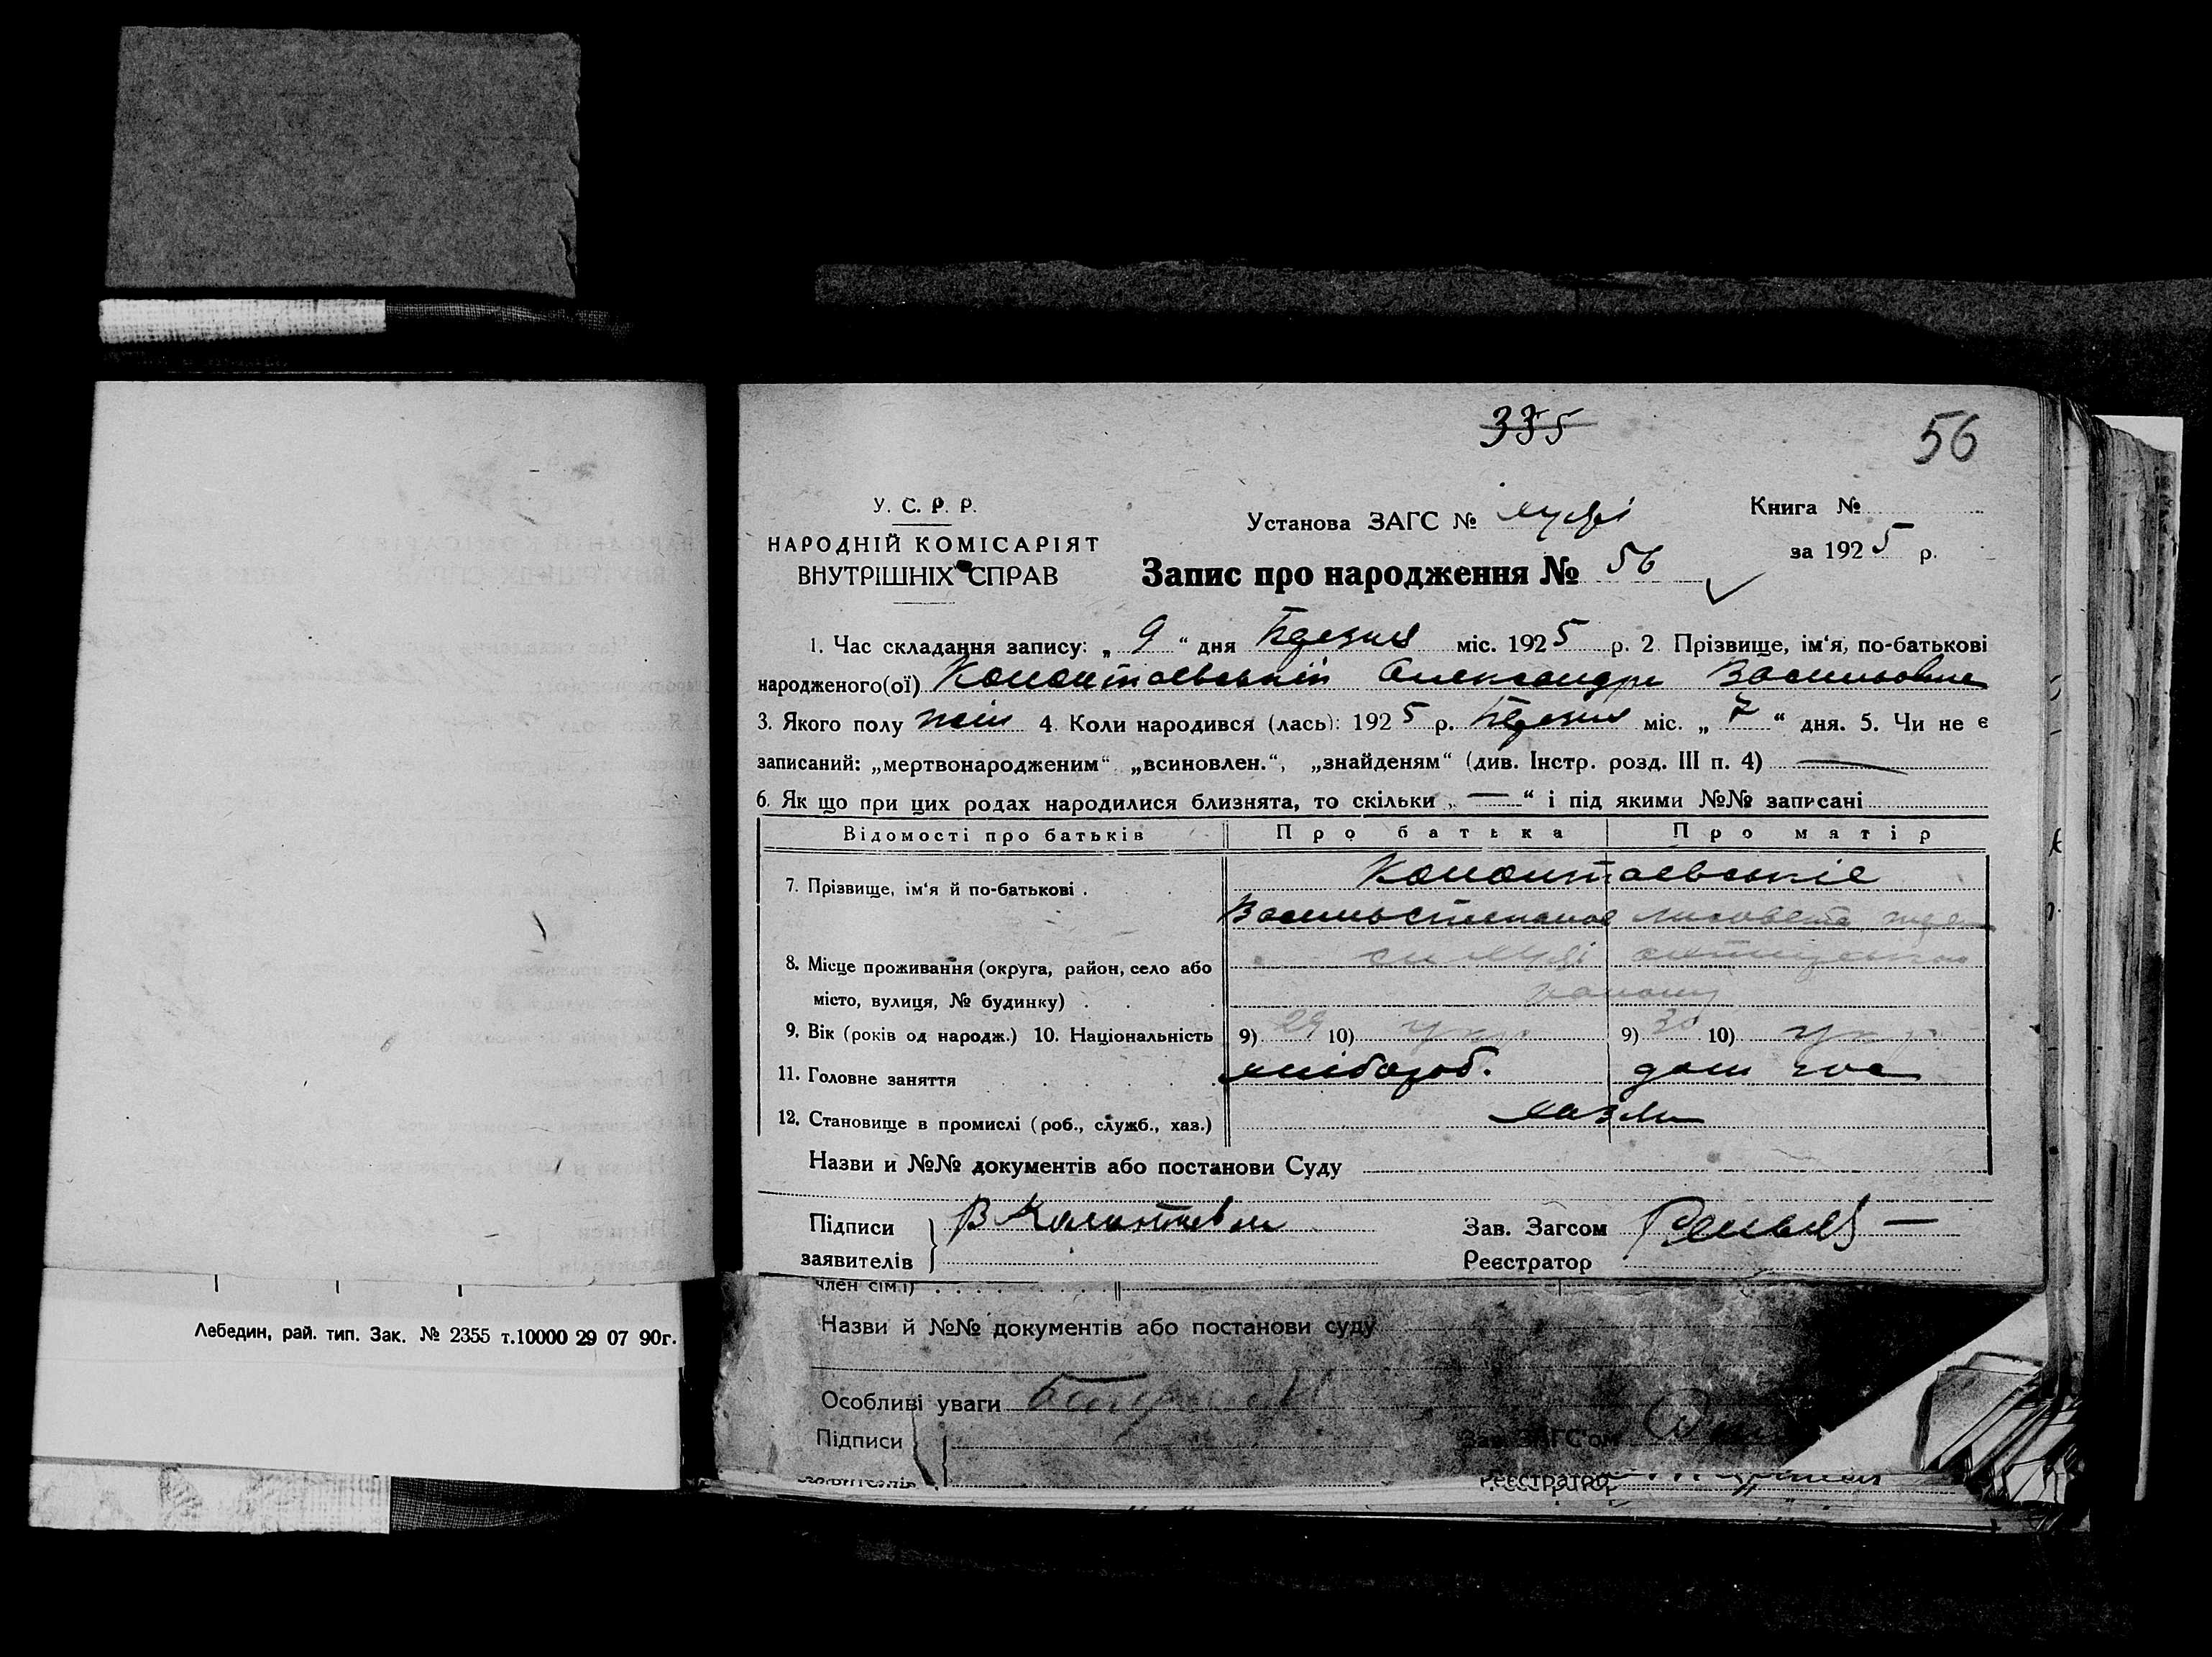 335
56
У. С. Р. Р.
НАРОДНІЙ КОМІСАРІЯТ
ВНУТРІШНІХ СПРАВ
Установа ЗАГС №
Книга №
за 1925 р.
Запис про народження № 56
1. Час складання запису: „ 9 “ дня Березня міс. 1925 р. 2. Прізвище, ім‘я, по-батькові
народженого(ої) Олександра Васильовна
3. Якого полу жін 4. Коли народився (лась): 1925 р. Березня міс. „ 7 “ дня. 5. Чи не є
записаний: „мертвонародженим“ „всиновлен.“, „знайденям“ (див. Інстр. розд. III п. 4) —
6. Як що при цих родах народилися близнята, то скільки „ — “ і під якими №№ записані
Відомості про батьків Про батька Про матір
7. Прізвище, ім‘я й по-батькові .
Василь Степанов
8. Місце проживання (округа, район, село або
місто, вулиця, № будинку) . .
району
9. Вік (років од народж.) 10. Національність 9) 29 10) укр 9) 30 10) укр
11. Головне заняття хлібороб. дом гос
12. Становище в промислі (роб., служб., хаз.)
Назви и №№ документів або постанови Суду
Підписи
заявителів
Зав. Загсом
Реєстратор
член сім.ї)
Назви й №№ документів або постанови суду
Особливі уваги
Підписи
заявителів
Зав. ЗАГС'ом
Реєстратор
Лебедин, рай. тип. Зак. № 2355 т.10000 29 07 90г.